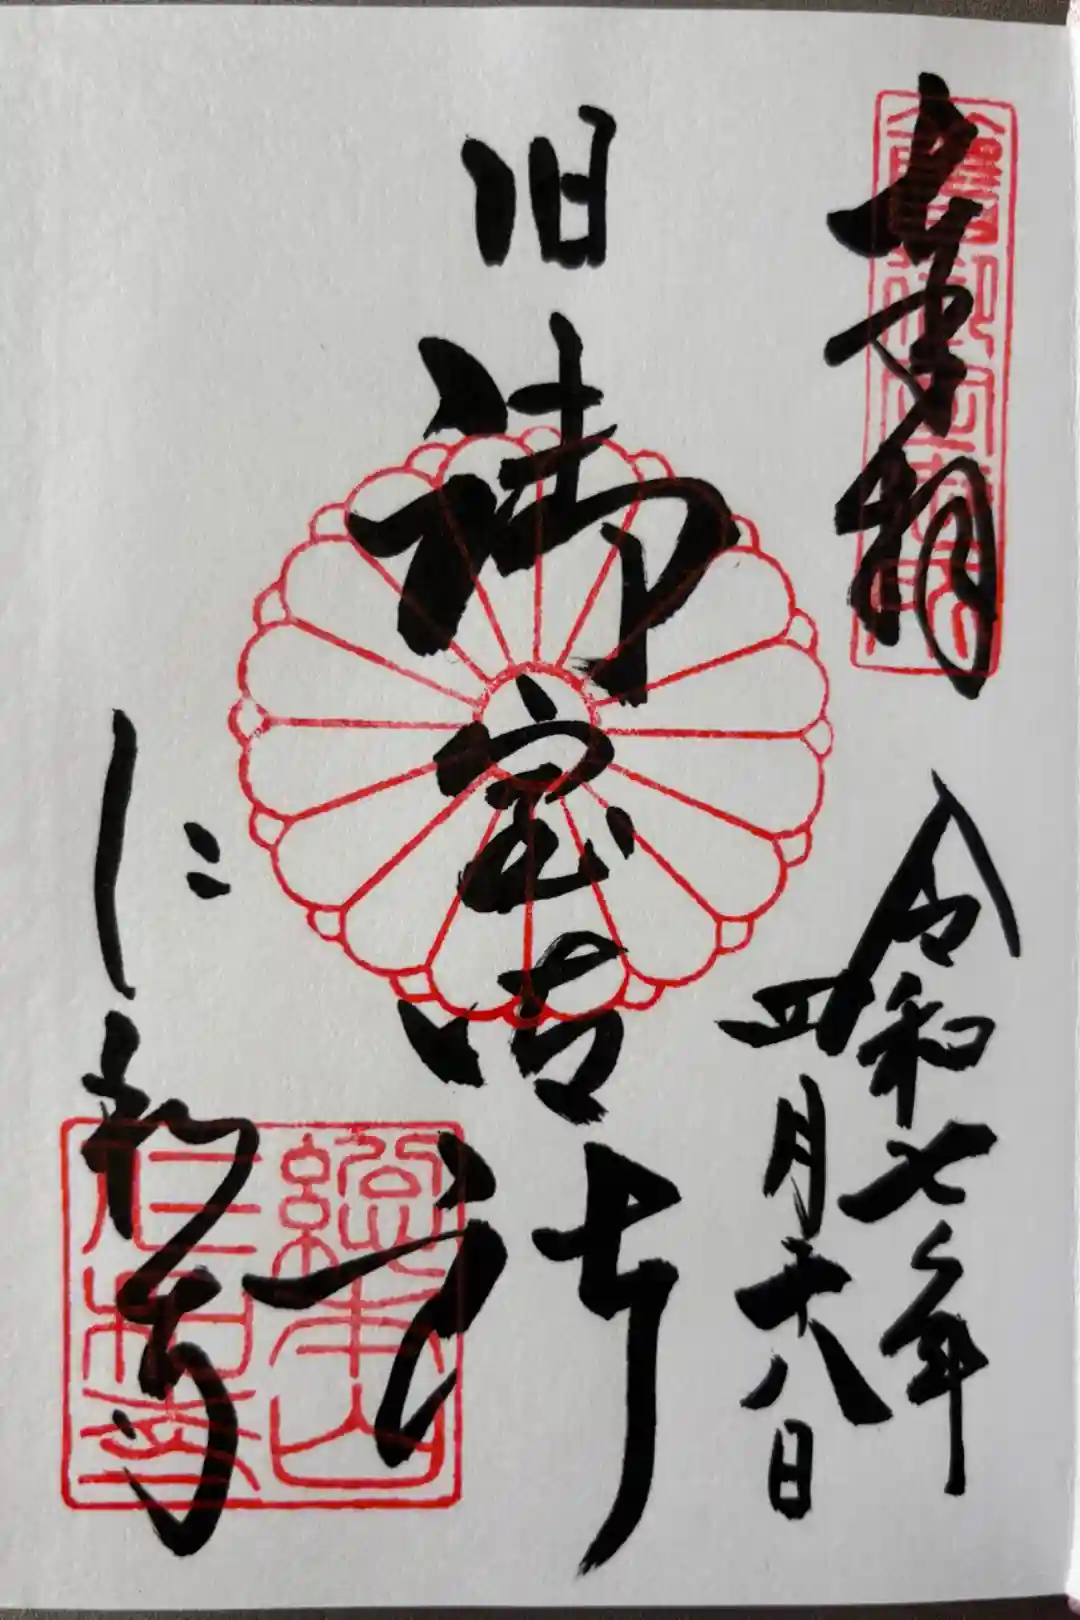 奉拝
令和七年
四月十八日
旧御室御所
仁和寺
總本山
仁和寺